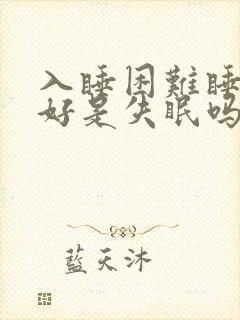 入睡困難睡
好是失眠吗
藍天沐